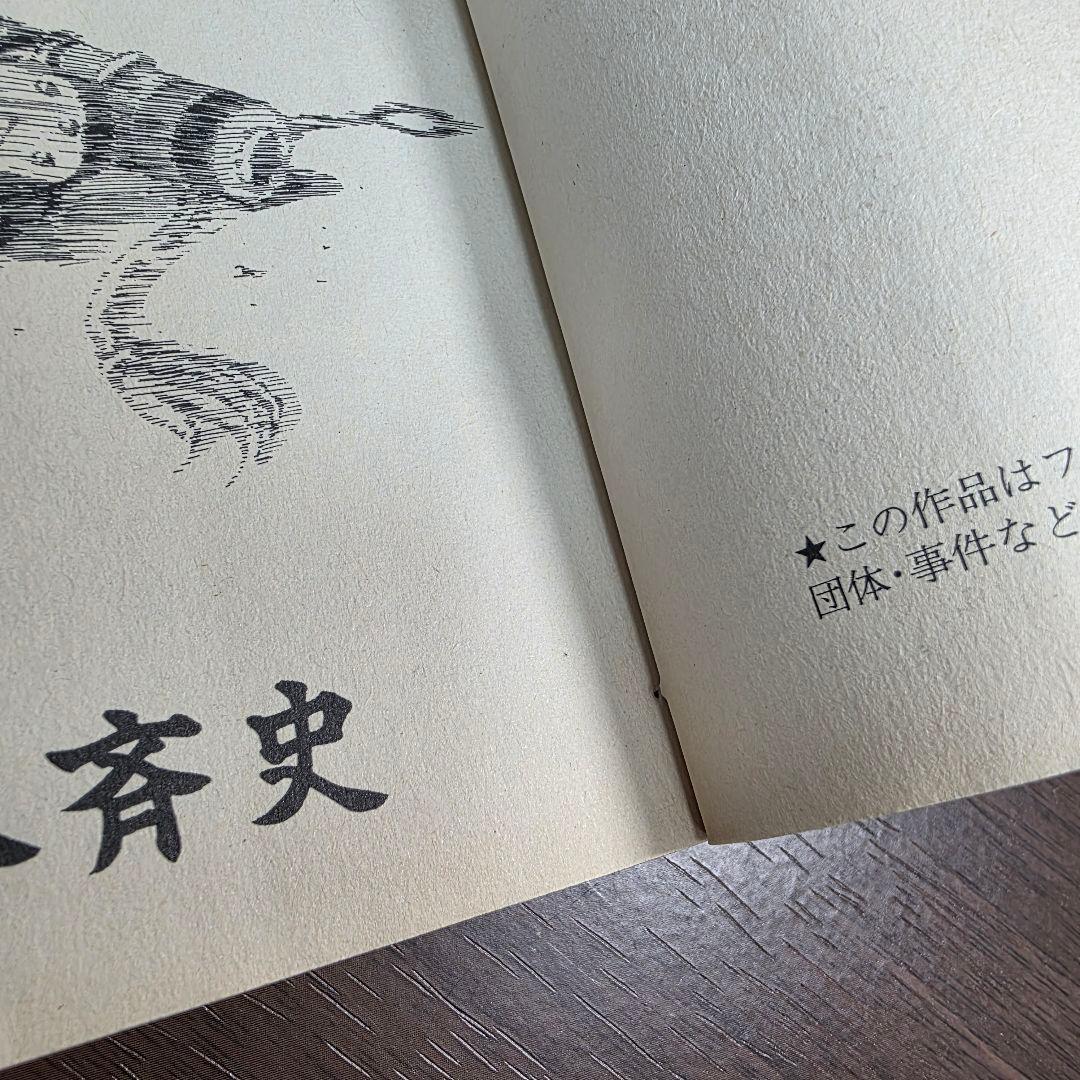 ★この作品はフ
団体・事件など
斉史